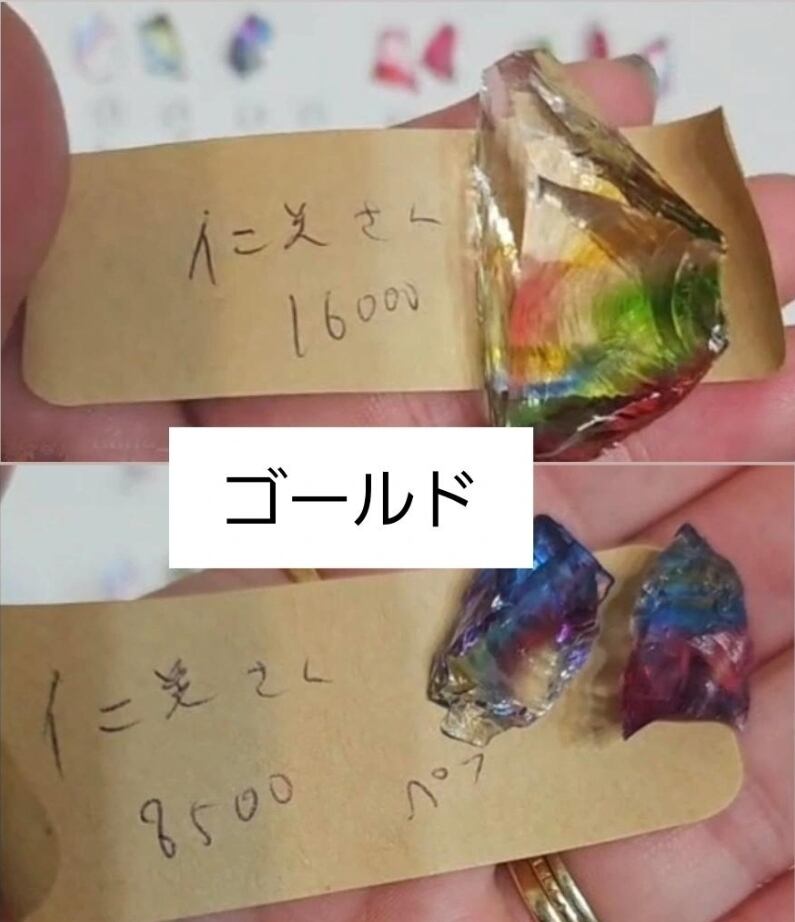 仁美さん
16000
ゴールド
仁美さん
8500 ペア